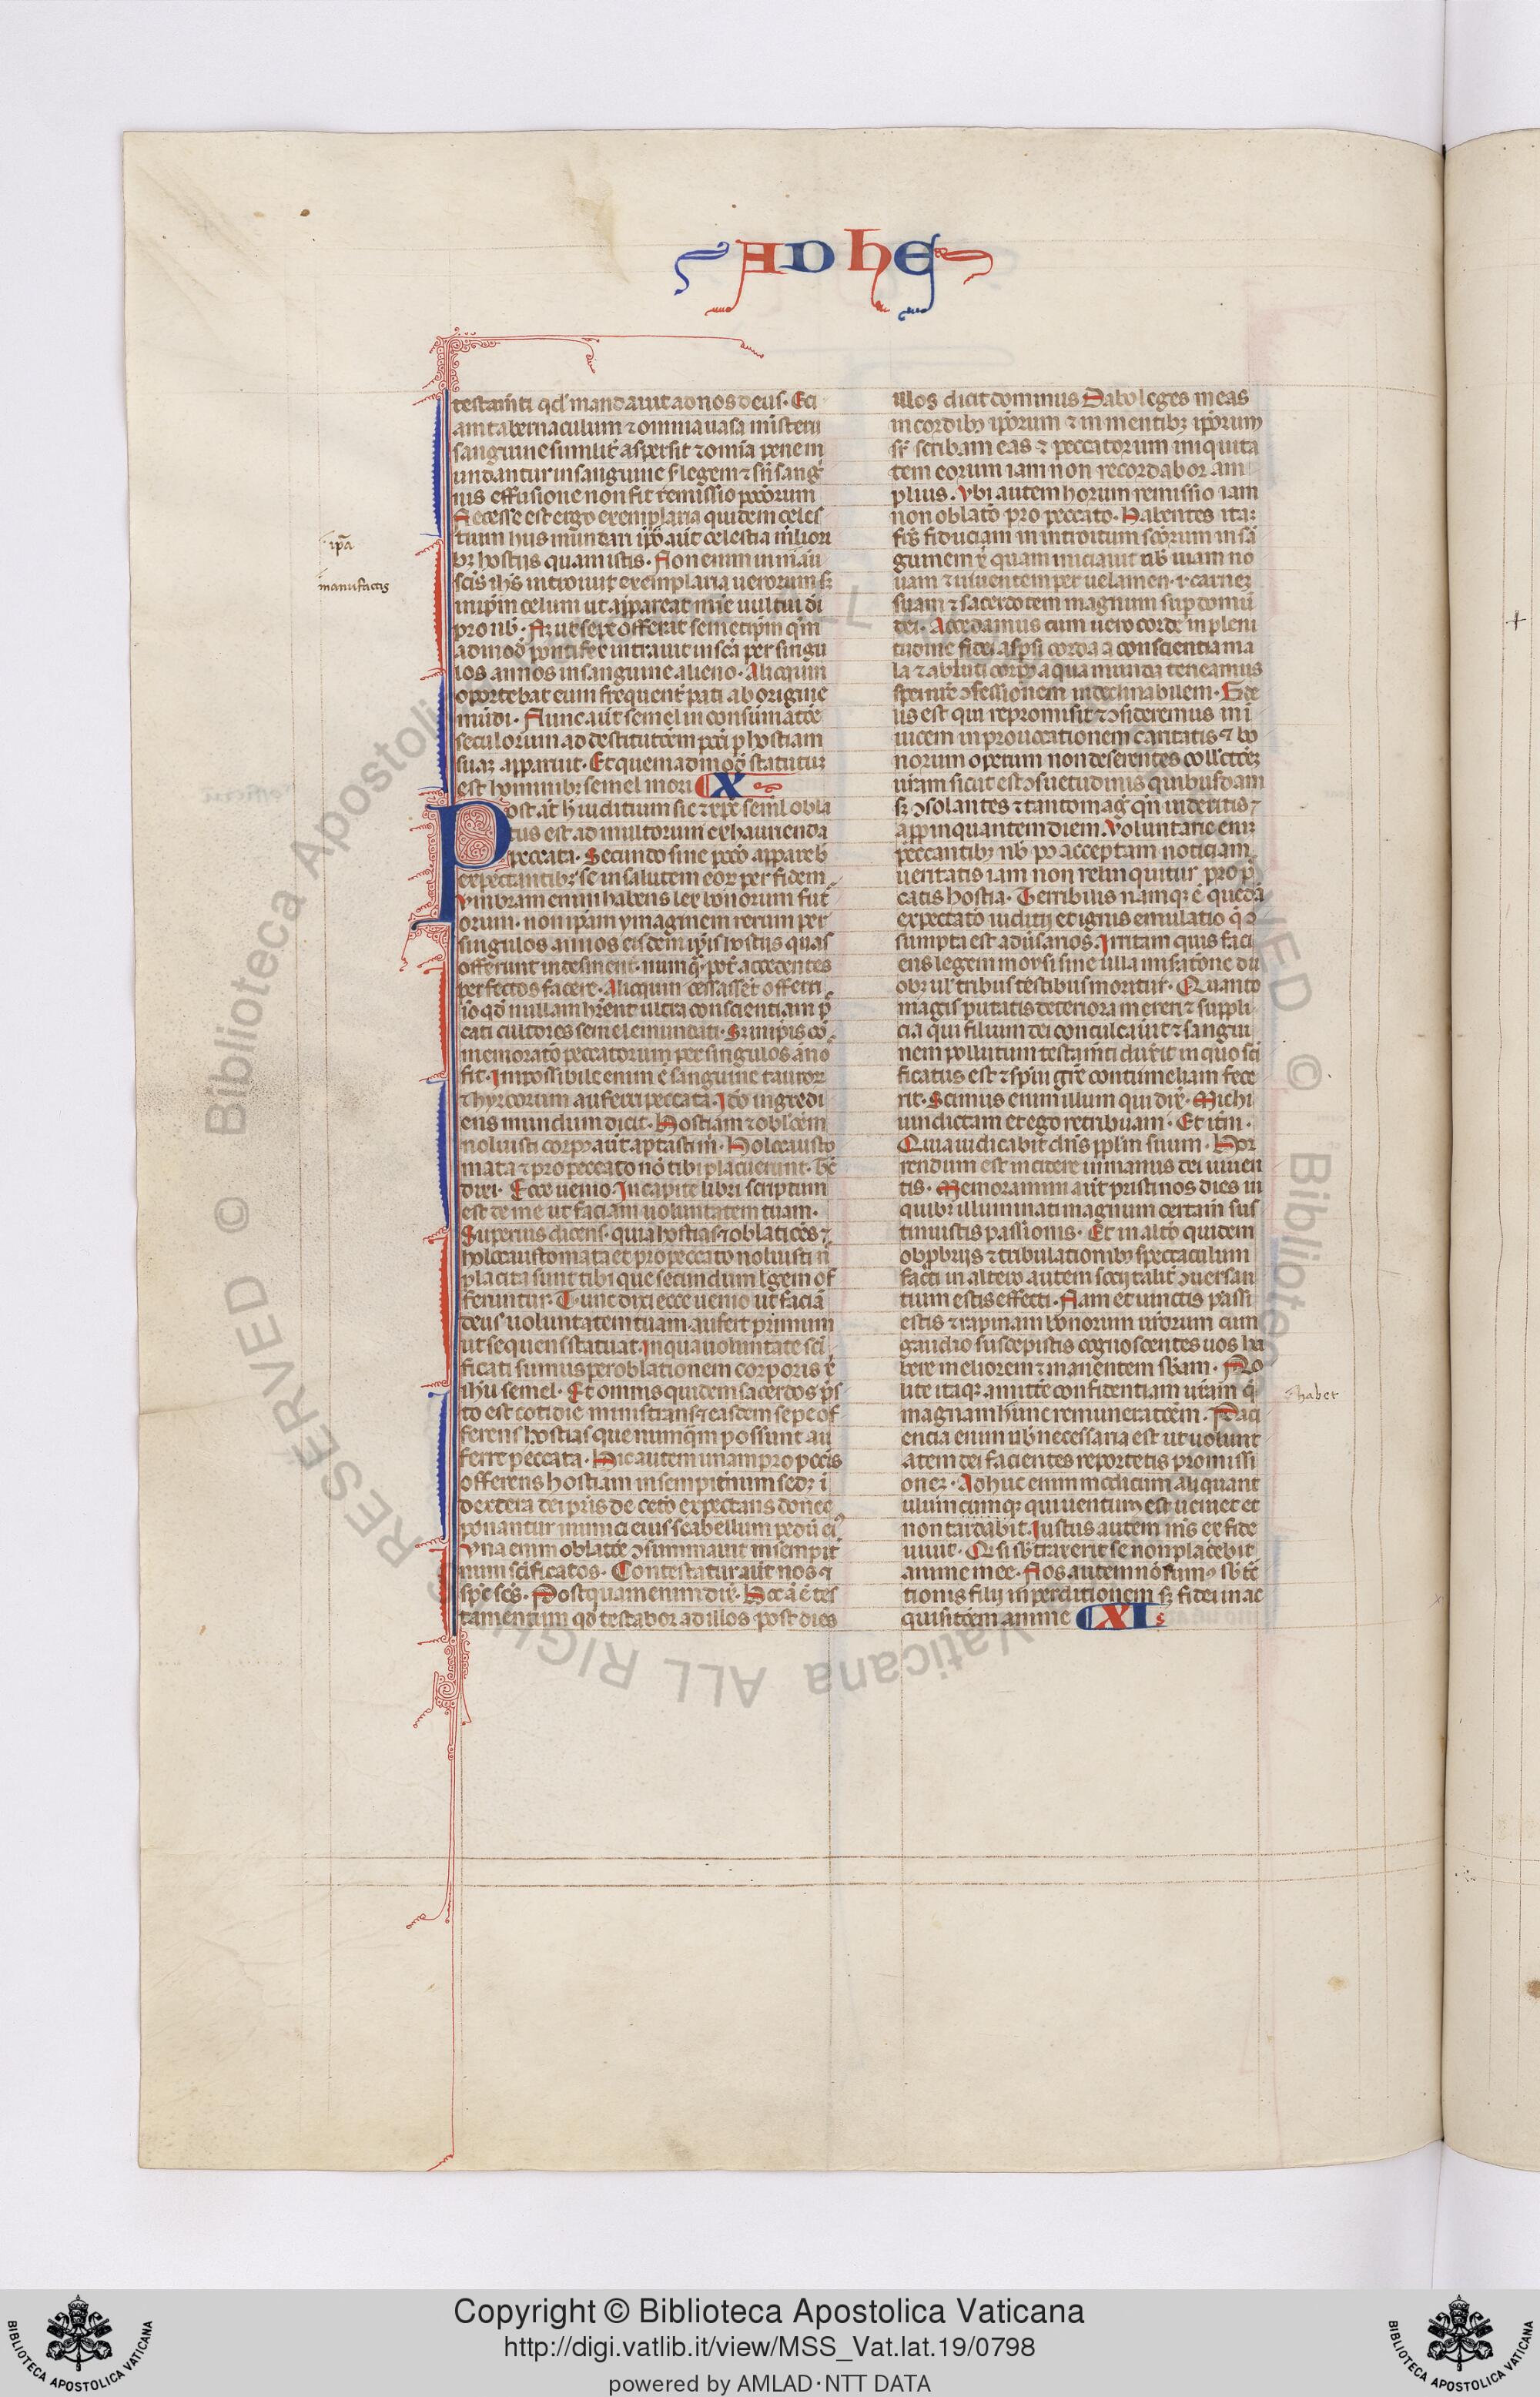 AD HE
testam̃ti qđ mandauit ad nos deus. Eci
am tabernaculum ⁊ omnia uasa misterii
sanguine similiť aspersit ⁊ omĩa pene in
undantur in sanguine s̃ legem ⁊ sñ sang̃
nis effusione non fit remissio pccõrum
Necesse est ergo exemplaria quidem celes
tium hiis mundari ip̃õ aũt celestia m̃liori
bꝫ hostijs quam istis. Non enim in mãu
sc̃is ih̃s introiuit exemplaria uerorum sꝫ
in ip̃m celum ut appareat m̃c uultui di
pro nb̃. Nꝫ ut sepe offerat semetip̃m q̃m
admoð pontifex intrauit in sc̃a per singu
los annos in sanguine alieno. Alioquin
oportebat eum frequenť pati ab origine
mũdi. Nunc aũt semel in consũmatõe
seculorum ad destitutõem pcc̃i p̱ hostiam
suaꝫ apparuit. Et quemadmoð statutuꝫ
est hominibꝫ semel mori X
Post aũt h̃ iudicium sic ⁊ xp̃c seml̃ obla
tus est ad multorum exhaurienda
peccata. Secundo sine pccõ appareb̃
expectantibꝫ se in salutem eoꝝ per fidem
Vmbram enim habens lex bonorum fut̃
orum. non ip̃am ymaginem rerum per
singulos annos eisdem ip̃is hostijs quas
offerunt indesinent̃. numq̃. pot̃ accedentes
perfectos facere. Alioquin cessassent offerri
iõ qð nullam hr̃ent ultra conscientiam p̃
cati cultores semel emundati. Sꝫ in ip̃is cõ
memoratõ peccatorum per singulos ãno
fit. Impossibile enim ẽ sanguine tauroꝝ
⁊ hyrcorum auferri peccata. Iõo ingredi
ens mundum dicit. Hostiam ⁊ obl̃cõem
noluisti corpꝰ aũt aptasti m̃. Holocausto
mata ⁊ pro peccato nõ tibi placuerunt. Tc̃
dixi. Ecce uenio. In capite libri scriptum
est de me ut faciam uoluntatem tuam.
Superius dicens. quia hostias ⁊ oblatiões ⁊
holocaustomata et pro peccato noluisti ñ
placita sunt tibi que secundum l̃gem of
feruntur. Tunc dixi ecce uenio ut faciã
deus uoluntatem tuam. aufert primum
ut sequens statuat. In qua uoluntate sc̃i
ficati sumus per oblationem corporis x̃
ih̃u semel. Et omnis quidem sacerdos p̃s
to est cotidie ministrans ⁊ easdem sepe of
ferens hostias que numq̃m possunt au
ferre peccata. Hic autem unam pro pccĩs
offerens hostiam in sempit̃num sedꝫ ĩ
dextera dei pr̃is de cet̃o expectans donec
ponantur inimici eius scabellum pedũ eiꝰ
Vna enim oblatõe ꝯsummauit in sempit̃
num sc̃ificatos. Contestatur aũt nos ⁊
sp̃c sc̃s. Postquam enim dix̃. Hoc ãt ẽ tes
tamentum qð testabor ad illos post dies
illos dicit dominus Dabo leges meas
in cordibꝫ ip̃orum ⁊ in mentibꝫ ip̃orum
sr̃ scribam eas ⁊ peccatorum iniquita
tem eorum iam non recordabor am
plius. Vbi autem horum remissio iam
non oblatõ pro peccato. Habentes itaꝫ
fr̃s fiduciam in introitum scõrum in sã
guinem x̃ quam iniciauit nb̃ uiam no
uam ⁊ uiuentem per uelamen .i. carneꝫ
suam ⁊ sacerdotem magnum suꝑ domũ
dei. Accedamus cum uero corde in pleni
tudine fidei aspsi corda a conscientia ma
la ⁊ abluti corpꝰ aqua munda teneamus
spei nr̃e ꝯfessionem indeclinabilem. Fide
lis est qui repromisit ⁊ ꝯsideremus in i
uicem in prouocationem caritatis ⁊ bo
norum operum non deserentes coll̃ctõeꝫ
nr̃am sicut est ꝯsuetudinis quibusdam
sꝫ ꝯsolantes ⁊ tanto mag̃ q̃n uideritis
appinquantem diem. Voluntarie eniꝫ
peccantibꝫ nb̃ pꝰ acceptam noticiam
ueritatis iam non relinquitur pro p̃
catis hostia. Terribilis namqꝫ ẽ quedã
expectatõ iudicij et ignis emulatio q̃ ꝯ
sumpta est adũsarios. Irritam quis faci
ens legem moysi sine ulla mis̃ratõne du
obꝫ ul̃ tribus testibus moritur. Quanto
magis putatis deteriora mereri ⁊ suppli
cia qui filium dei conculcauit ⁊ sangui
nem pollutum testam̃ti duxit in quo sc̃i
ficatus est ⁊ sp̃iu gr̃e contumeliam fece
rit. Scimus enim illum qui dix̃. Michi
uindictam et ego retribuam. Et itm̃.
Quia iudicabit dñs ppl̃m suum. Hor
rendum est incidere in manus dei uiuen
tis. Memoramini aũt pristinos dies in
quibꝫ illuminati magnum certam̃ sus
tinuistis passionis. Et in alt̃o quidem
obpbrijs ⁊ tribulationibꝫ spectaculum
facti in altero autem socij taliť ꝯuersan
tium estis effecti. Nam et uinctis passi
estis ⁊ rapinam bonorum ur̃orum cum
gaudio suscepistis cognoscentes uos ha
bere meliorem ⁊ manentem sb̃am. No
lite itaqꝫ amitt̃e confidentiam ur̃am q̃
magnam hũnc remuneratõem. Paci
encia enim ub̃ necessaria est ut uolunt
atem dei facientes reportetis promissi
oneꝫ. Adhuc enim modicum aliquant
ulum cumqꝫ qui uenturꝰ est ueniet et
non tardabit. Iustus autem m̃s ex fide
uiuit. Qꝫ si sb̃traxerit se non placebit
anime mee. Nos autem nõ sumꝰ sb̃tc̃
tionis filij in perditionem sꝫ fidei in ac
quisitõem anime XI
ip̃a
manufactis
habet
Copyright © Biblioteca Apostolica Vaticana
http://digi.vatlib.it/view/MSS_Vat.lat.19/0798
powered by AMLAD·NTT DATA
BIBLIOTECA APOSTOLICA VATICANA
BIBLIOTECA APOSTOLICA VATICANA